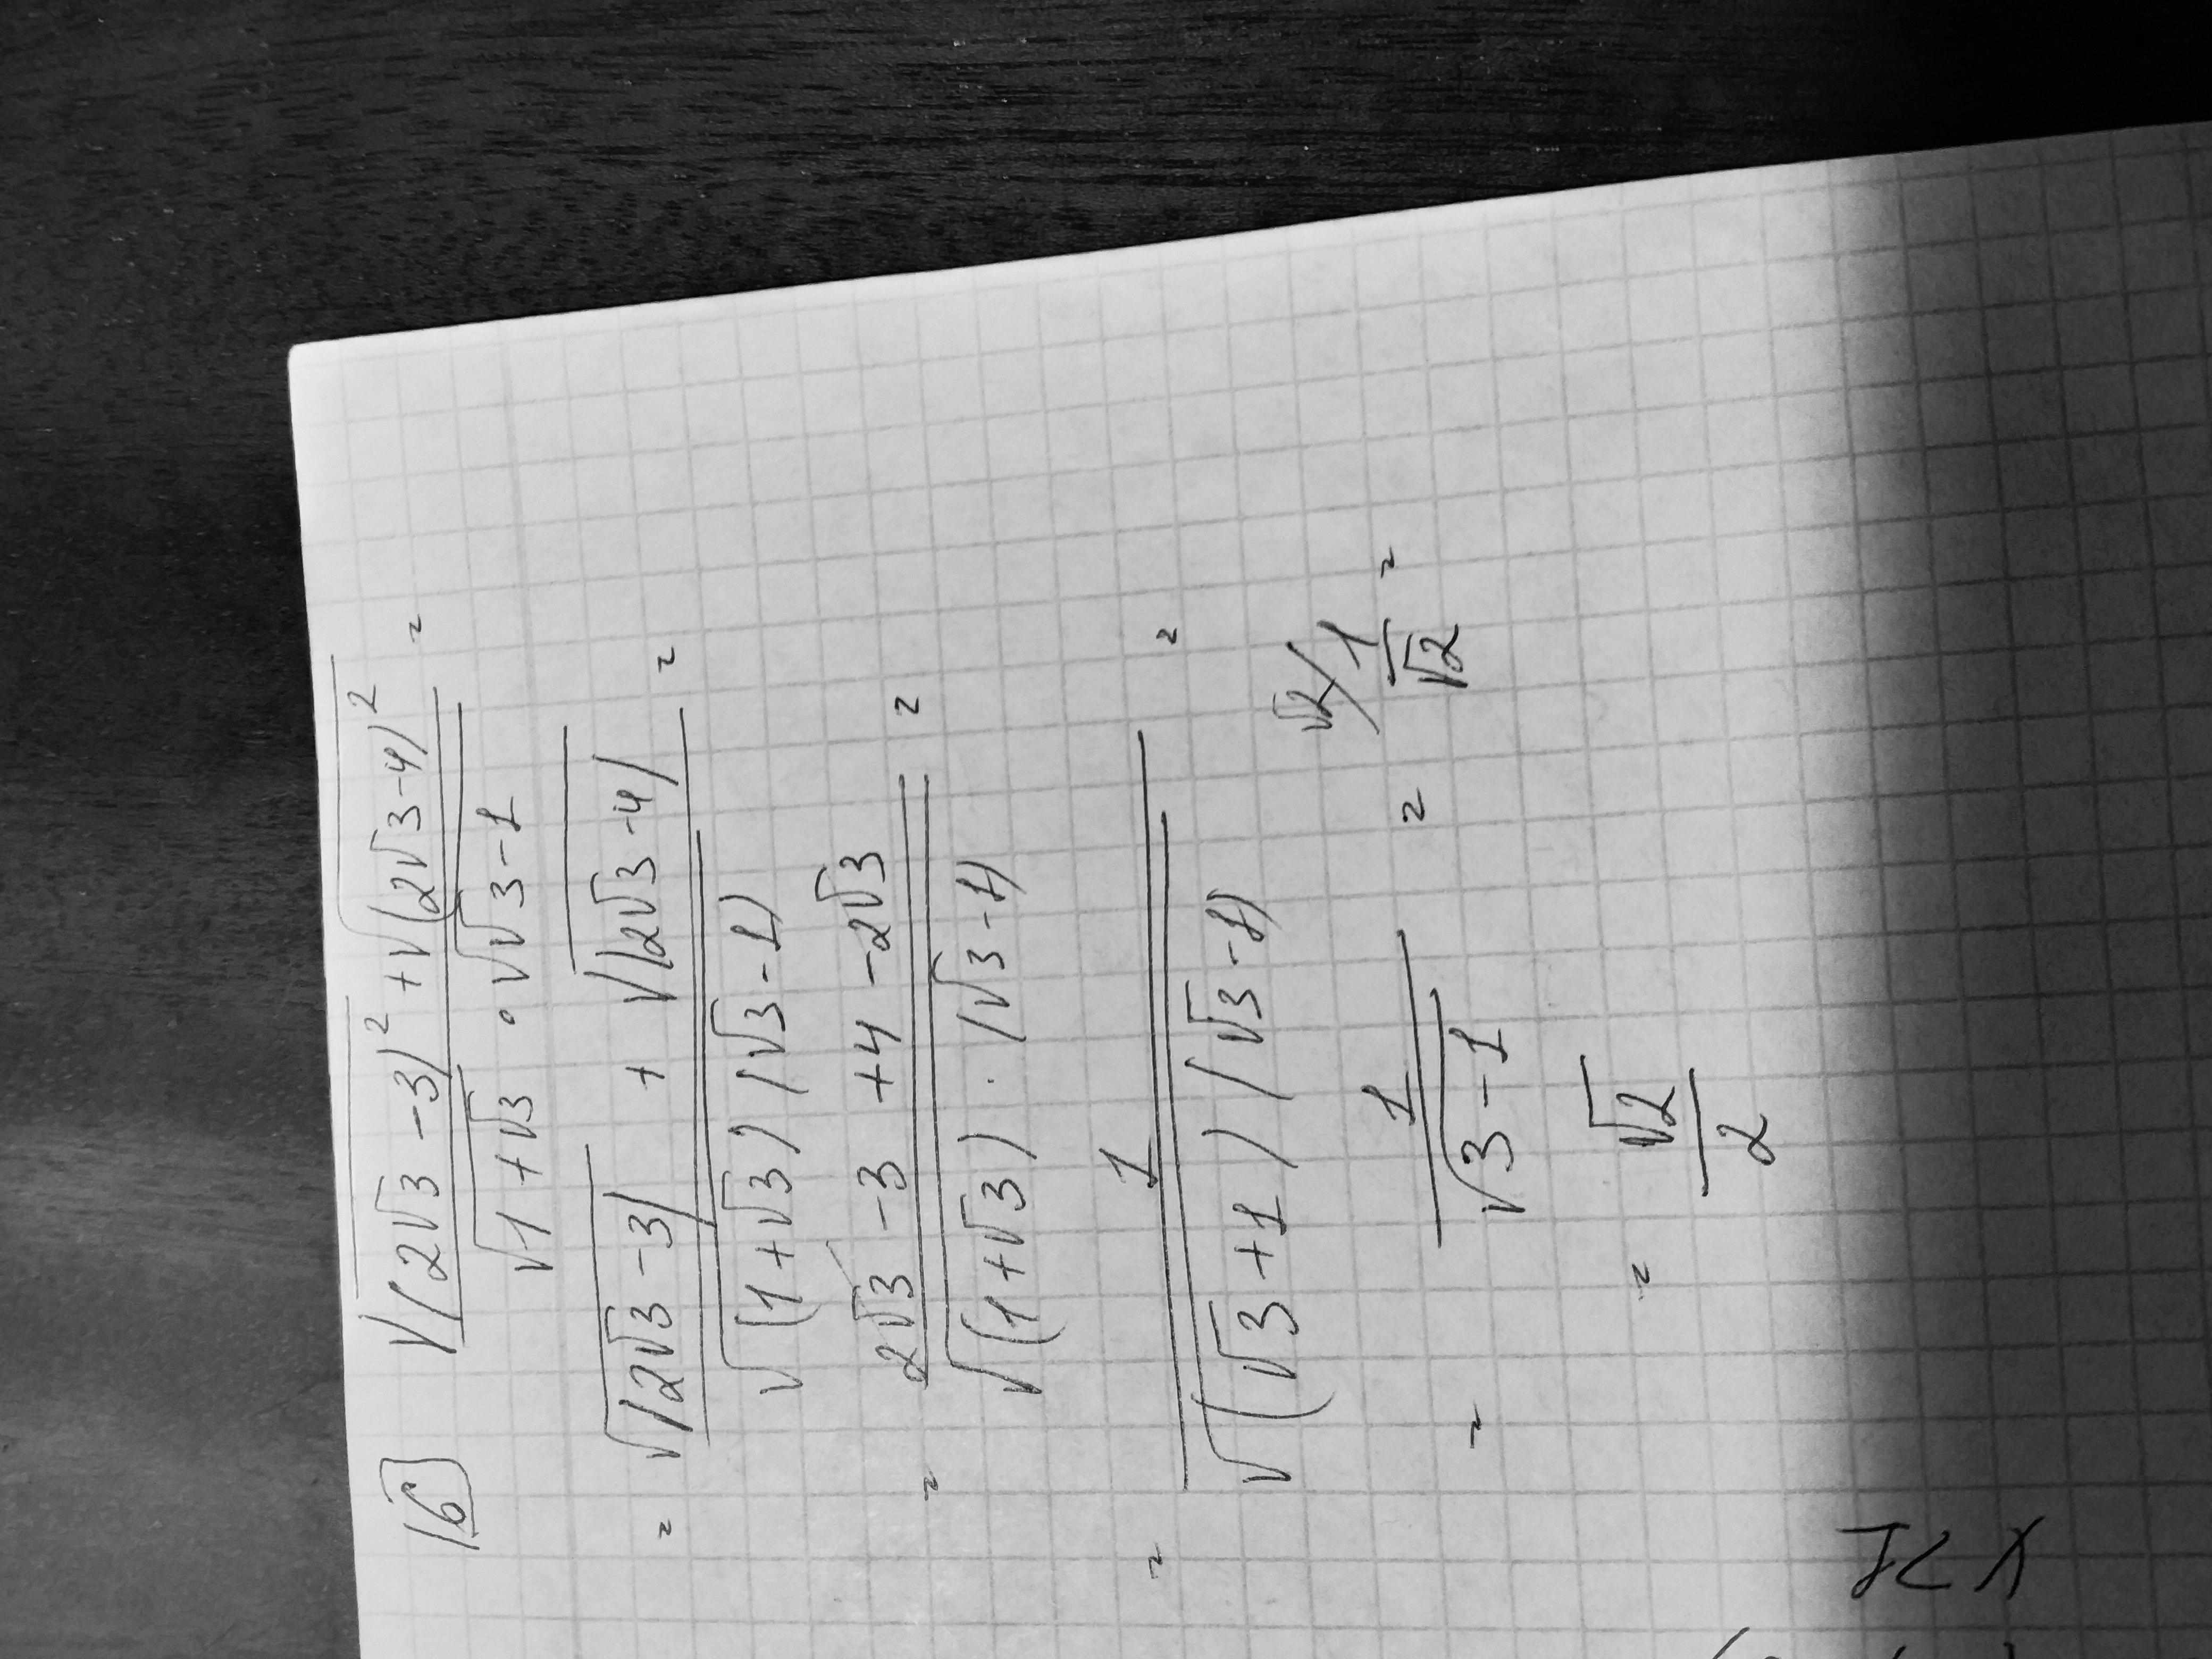 16 √(2√3 -3)² + √(2√3-4)² =
√1+√3 · √√3-1
= √|2√3 -3| + √|2√3-4| =
√(1+√3) (√3-1)
= 2√3 -3 +4 -2√3 =
√(1+√3) · (√3-1)
= 1 =
√(√3+1) (√3-1)
= 1 = √2/ 1 =
√3-1 √2
= √2
2